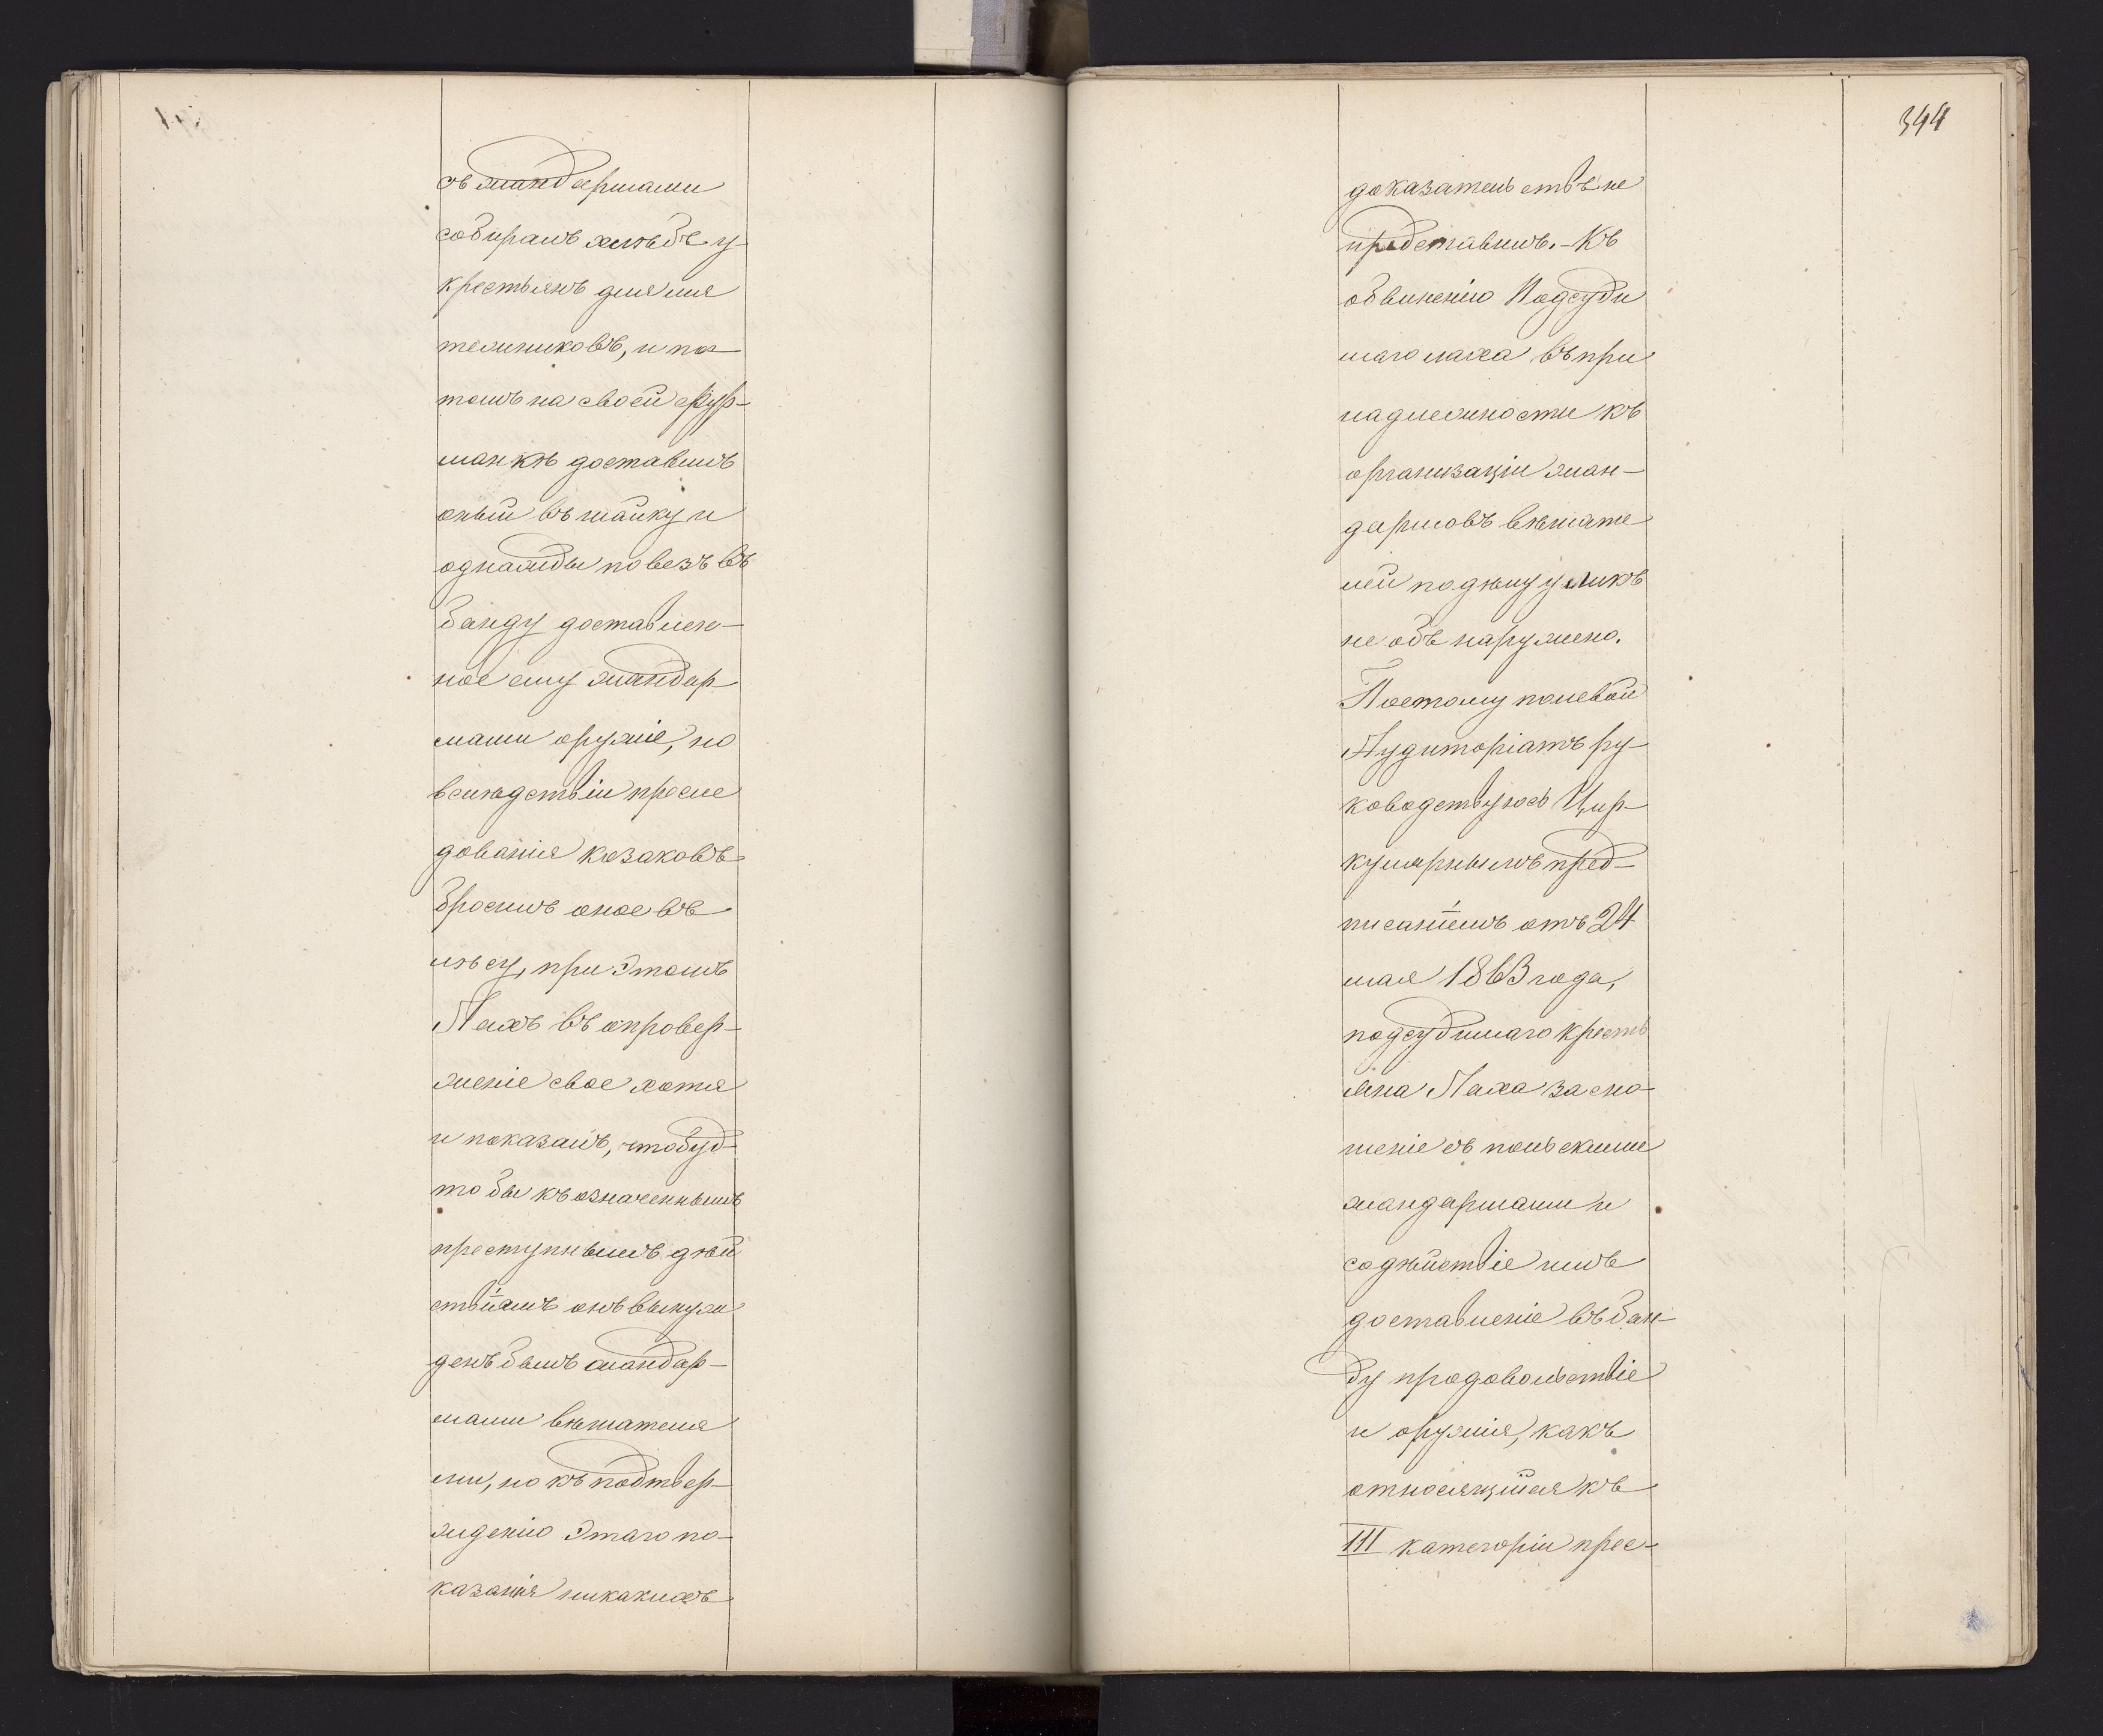 съ жандармами
собиралъ хлѣбъ у
крестьянъ для мя
тежниковъ, и по-
томъ на своей фур-
манкѣ доставилъ
оный въ шайку и
однажды повезъ въ
банду доставлен-
ное ему жандар-
мами оружіе, но
вслѣдствіи пресле
дованія козаковъ
бросилъ оное въ
лѣсу, при этомъ
Пахъ въ опровер-
женіе свое хотя
и показалъ, что буд-
то бы къ означеннымъ
преступнымъ дѣй
ствіямъ онъ вынуж
денъ былъ жандар-
мами вѣшателя
ми, но къ подтвер-
жденію этаго по-
казанія никакихъ
344
доказательствъ не
представилъ. - Къ
обвиненію Подсуди
маго Паха въ при
надлежности къ
организаціи жан-
дармовъ вѣшате
лей подѣлу уликъ
не объ наружено.
Поетому полевой
Аудиторіатъ ру-
ководствуюсь Цир-
кулярнымъ пред-
писаніемъ отъ 24
мая 1863 года,
подсудимаго кресть
яна Паха за сно-
шеніе съ польскими
жандармами и
содѣйствіе имъ
доставленіе въ бан-
ду продовольствіе
и оружія, какъ
относящіяся къ
III категоріи прес-